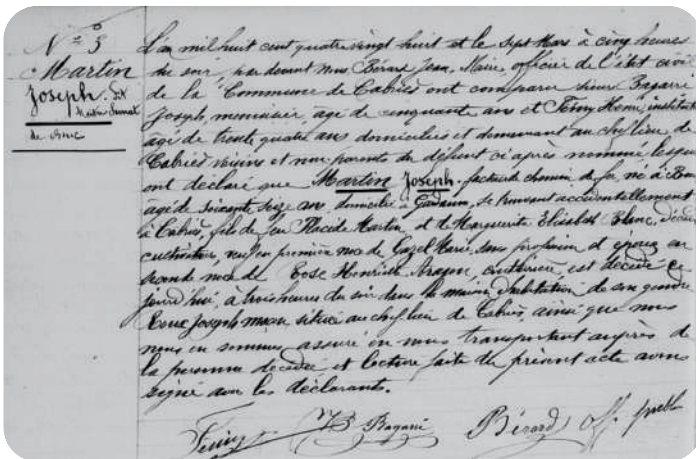 Nº 3
Martin
Joseph. dit
de Bouc
L'an mil huit cent quatre vingt huit et le sept Mars à cinq heures
du soir, par devant nous Bérard Jean, Maire, officier de l'état civil
de la Commune de Cabriès ont comparu sieurs Bagarre
Joseph, menuisier, âgé de cinquante ans et Henri, institut
âgé de trente quatre ans domiciliés et demeurant au chef lieu de
Cabriès voisins et non parents du défunt ci après nommé lesquels
ont déclaré que Martin Joseph. facteur de chemin de fer né à Bouc
âgé de soixante seize ans domicilié à Gardanne, se trouvant accidentellement
à Cabriès, fils de feu Placide Martin, et de Marguerite Elisabeth Blanc, décédés
cultivateurs, veuf en première noce de Marie, sans profession et époux en
seconde noce de Rose Henriette Aragon, couturière, est décédé ce
jourd'hui, à trois heures du soir dans la maison d'habitation de son gendre
Roux Joseph maçon, située au chef lieu de Cabriès, ainsi que nous
nous en sommes assuré en nous transportant auprès de
la personne décédée et lecture faite du présent acte avons
signé avec les déclarants.
Bérard off.